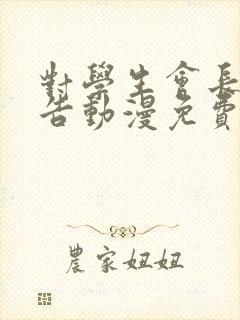 對學生會長
告動漫免費
農家妞妞